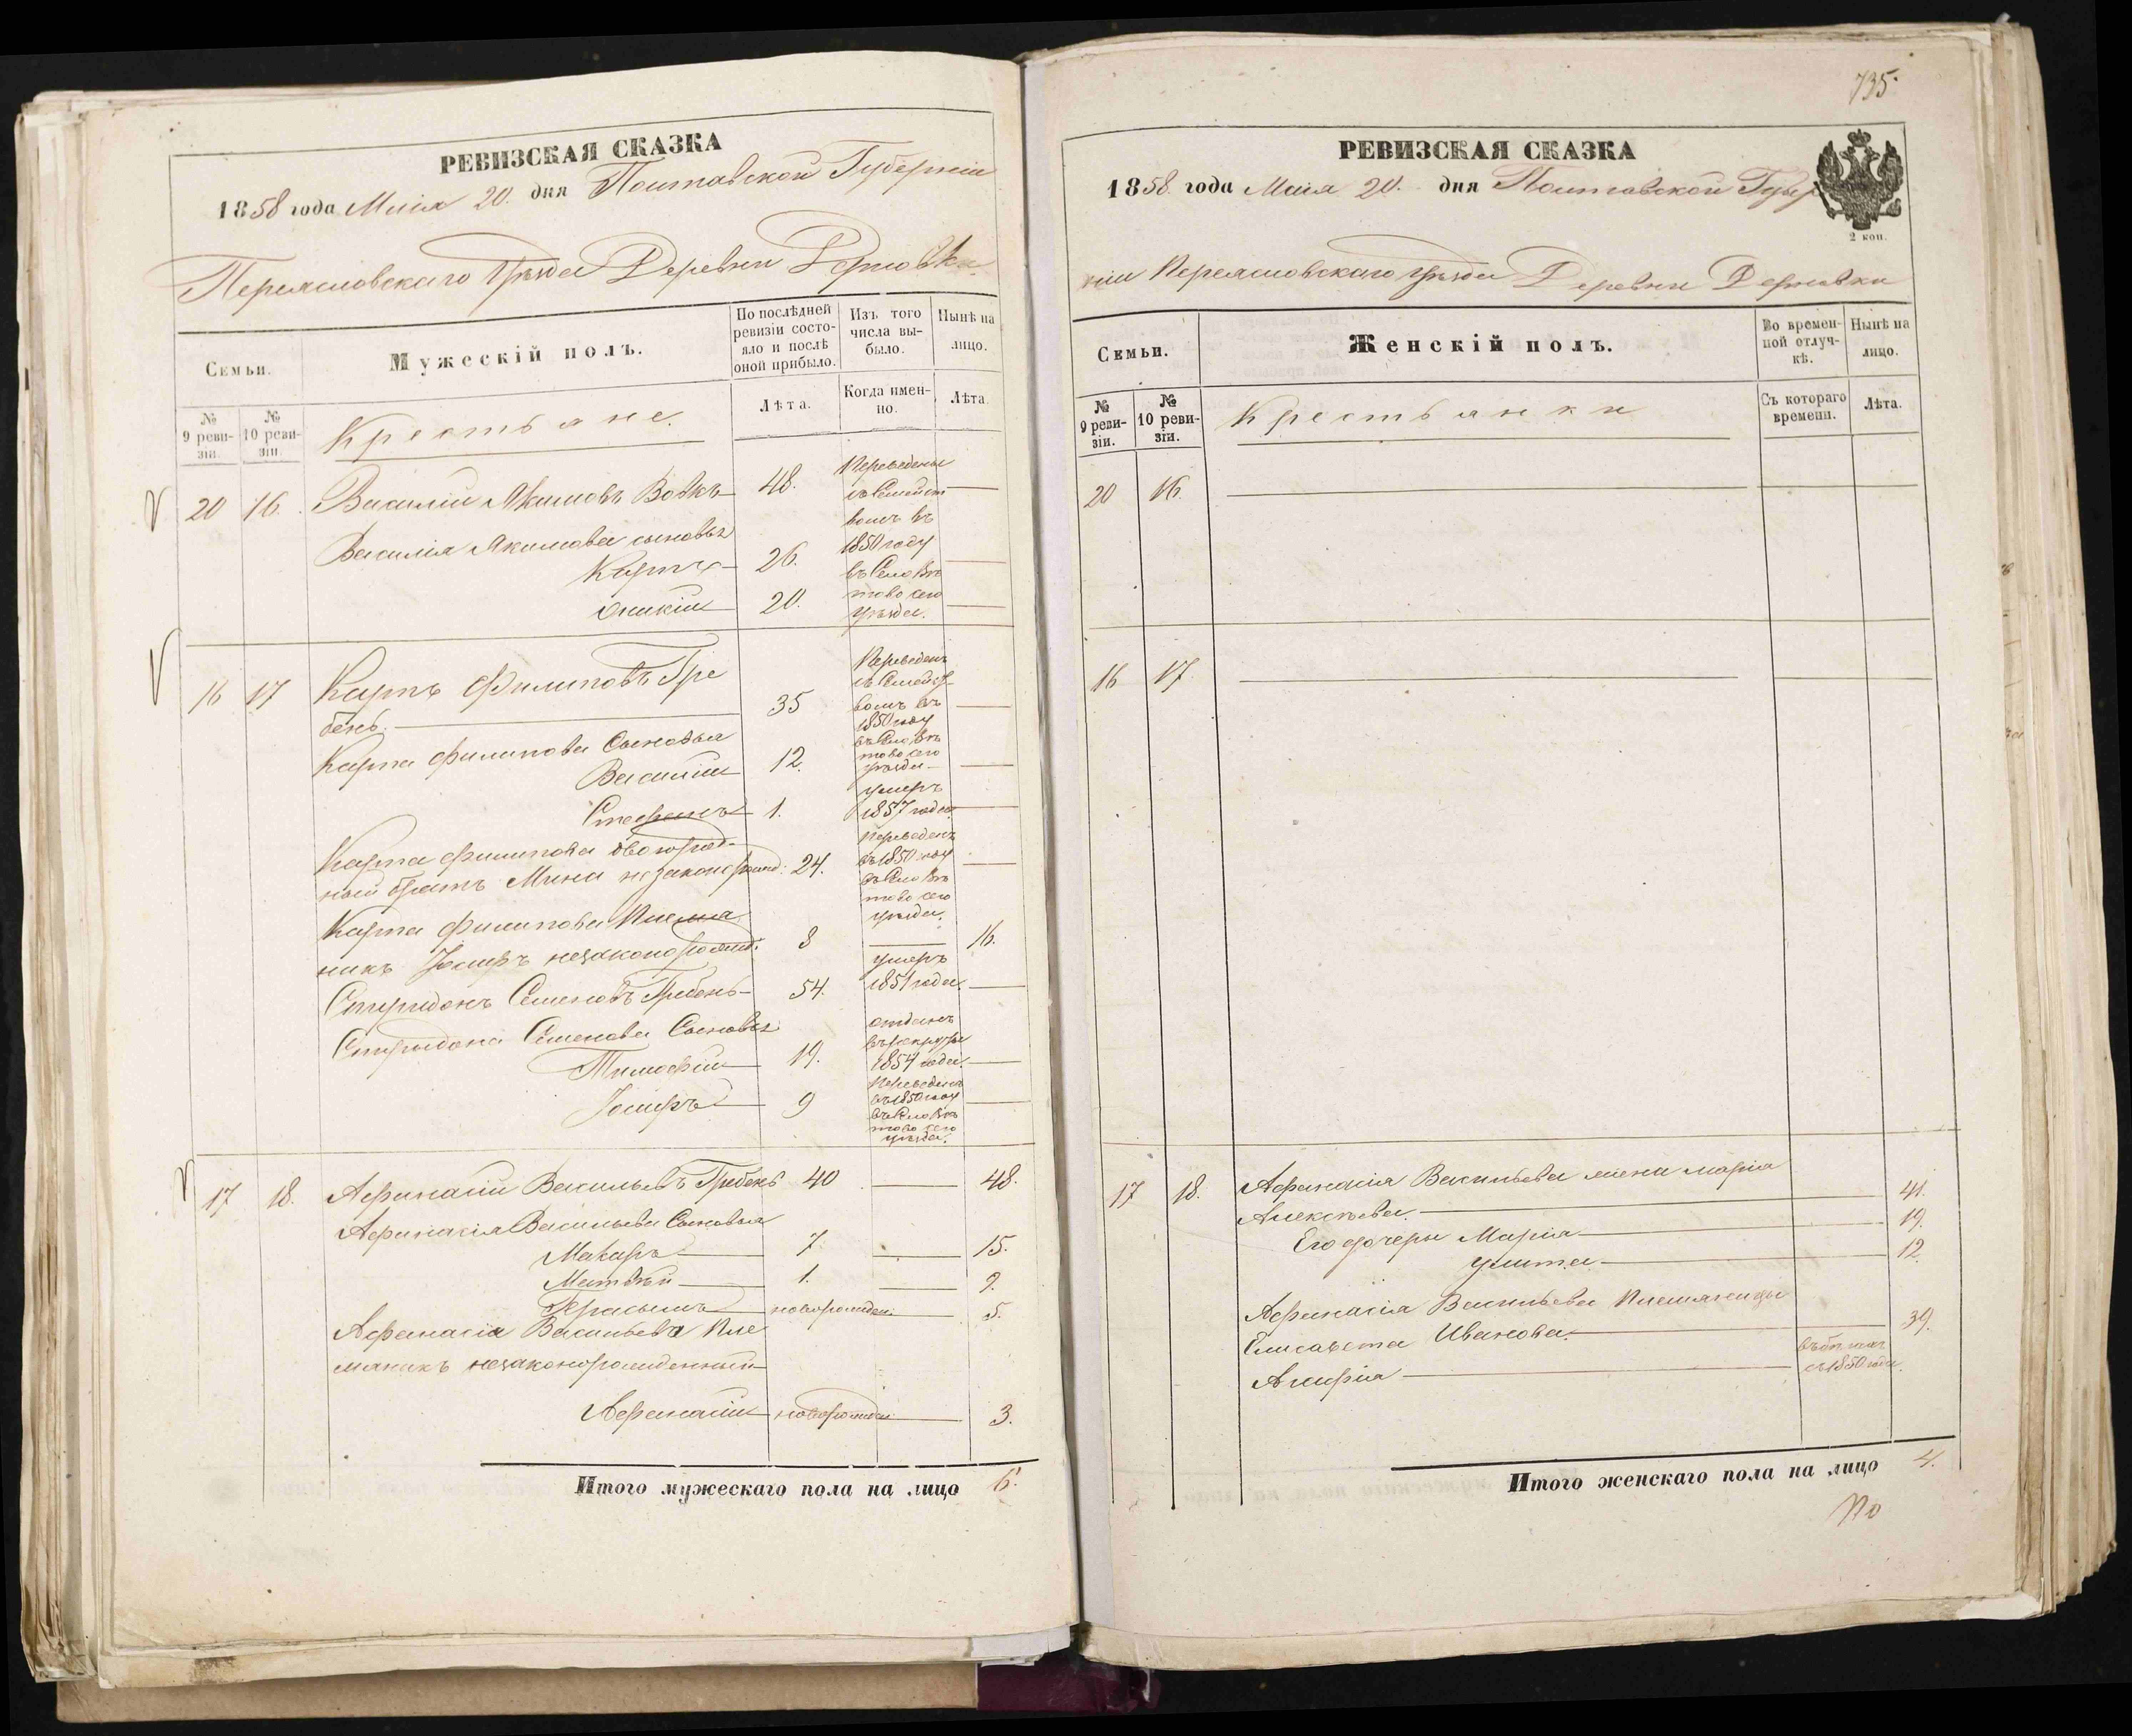 РЕВИЗСКАЯ СКАЗКА
1858 года Маія 20. дня Полтавской Губерніи
Переяславскаго Уѣзда Деревни
Семьи.
Мужескій полъ.
По послѣдней ревизіи состояло и послѣ оной прибыло.
Изъ того числа выбыло.
Нынѣ на лицо.
№ 9 ревизіи.
№ 10 ревизіи.
Крестьяне.
Лѣта.
Когда именно.
Лѣта.
20 16. Василій Якимовъ Вовкъ 48. Переведены
съ Семейст
вомъ въ
Василія Якимова сыновья 1850 году
Карпъ 26. въ Село Вы
тово сего
Оникій 20. уѣзда.
16 17 Карпъ Филиповъ Гре
бень. 35
Переведенъ
съ Семейст
вомъ въ
1850 году
въ Село Вы
тово сего
уѣзда
Карпа Филипова Сыновья
Василій 12.
Стефанъ 1. умеръ
1857 года
Карпа Филипова двоюрод-
ный братъ Мина незаконорожд: 24.
Переведенъ
въ 1850 году
въ Село Вы
тово сего
уѣзда.
Карпа Филипова Племя
никъ Іосифъ незаконорожд: 8 16.
Спиридонъ Семеновъ Гребень 54. умеръ
1851 года.
Спиридона Семенова Сыновья
Тимофій 19. отданъ
въ рекруты
1854 года.
Іосифъ 9 Переведенъ
въ 1850 году
въ Село Вы
тово сего
уѣзда.
17 18. Афанасій Васильевъ Гребень 40 48.
Афанасія Васильева Сыновья
Макаръ 7. 15.
Матвѣй 1. 9.
Герасымъ новорожден: 5.
Афанасія Васильева Пле
мяникъ незаконорожденный
Афанасій новорожден: 3.
Итого мужескаго пола на лицо 6.
735.
РЕВИЗСКАЯ СКАЗКА
1858 года Маія 20. дня Полтавской Губер
2 коп.
ніи Переяславскаго Уѣзда Деревни
Семьи.
Женскій полъ.
Во временной отлучкѣ.
Нынѣ на лицо.
№ 9 ревизіи.
№ 10 ревизіи.
Крестьянки
Съ котораго времени.
Лѣта.
20 16.
16 17.
17 18. Афанасія Васильева жена Марія
Алексѣева. 41.
Его дочери Марія 19.
Улита 12.
Афанасія Васильева Племяницы
Елисавета Иванова. 39.
Агафія въ бѣгахъ
съ 1850 года.
Итого женскаго пола на лицо 4.
По